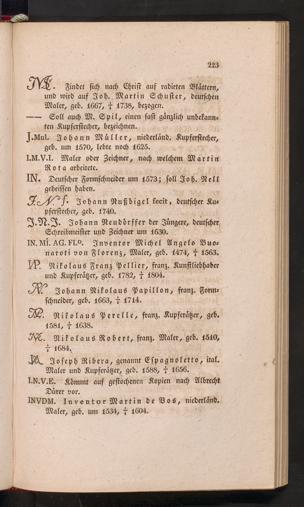 223
Findet sich nach Christ auf radirten Blättern,
und wird auf Joh. Martin Schuster, deutschen
Maler, geb. 1667, † 1738, bezogen.
—— Soll auch M. Spil, einen fast gänzlich unbekann-
ten Kupferstecher, bezeichnen.
J.Mul. Johann Müller, niederländ. Kupferstecher,
geb. um 1570, lebte noch 1625.
I.M.V.I. Maler oder Zeichner, nach welchem Martin
Rota arbeitete.
IN. Deutscher Formschneider um 1573; soll Joh. Nell
geheißen haben.
J. N. f. Johann Nußbigel fecit, deutscher Ku-
pferstecher, geb. 1740.
J.N.J. Johann Neudörffer der Jüngere, deutscher
Schreibmeister und Zeichner um 1630.
IN. MI. AG. FLO. Inventor Michel Angelo Buo-
naroti von Florenz, Maler, geb. 1474, † 1563.
Nikolaus Franz Pellier, franz. Kunstliebhaber
und Kupferätzer, geb. 1782, † 1804.
Johann Nikolaus Papillon, franz. Form-
schneider, geb. 1663, † 1714.
Nikolaus Perelle, franz. Kupferätzer, geb.
1581, † 1638.
Nikolaus Robert, franz. Maler, geb. 1540,
† 1684.
Joseph Ribera, genannt Espagnoletto, ital.
Maler und Kupferätzer, geb. 1588, † 1656.
I.N.V.E. Kömmt auf gestochenen Kopien nach Albrecht
Dürer vor.
INVDM. Inventor Martin de Vos, niederländ.
Maler, geb. um 1534, † 1604.